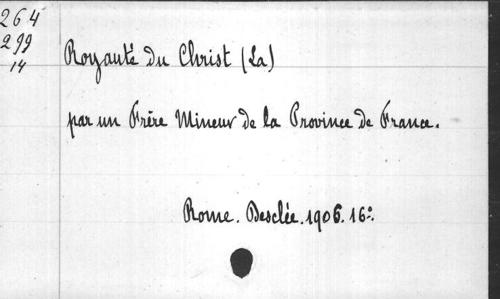 264
299
14
Royauté du Christ (La)
par un Frère Mineur de la Province de France.
Rome. Desclée. 1906. 16º.